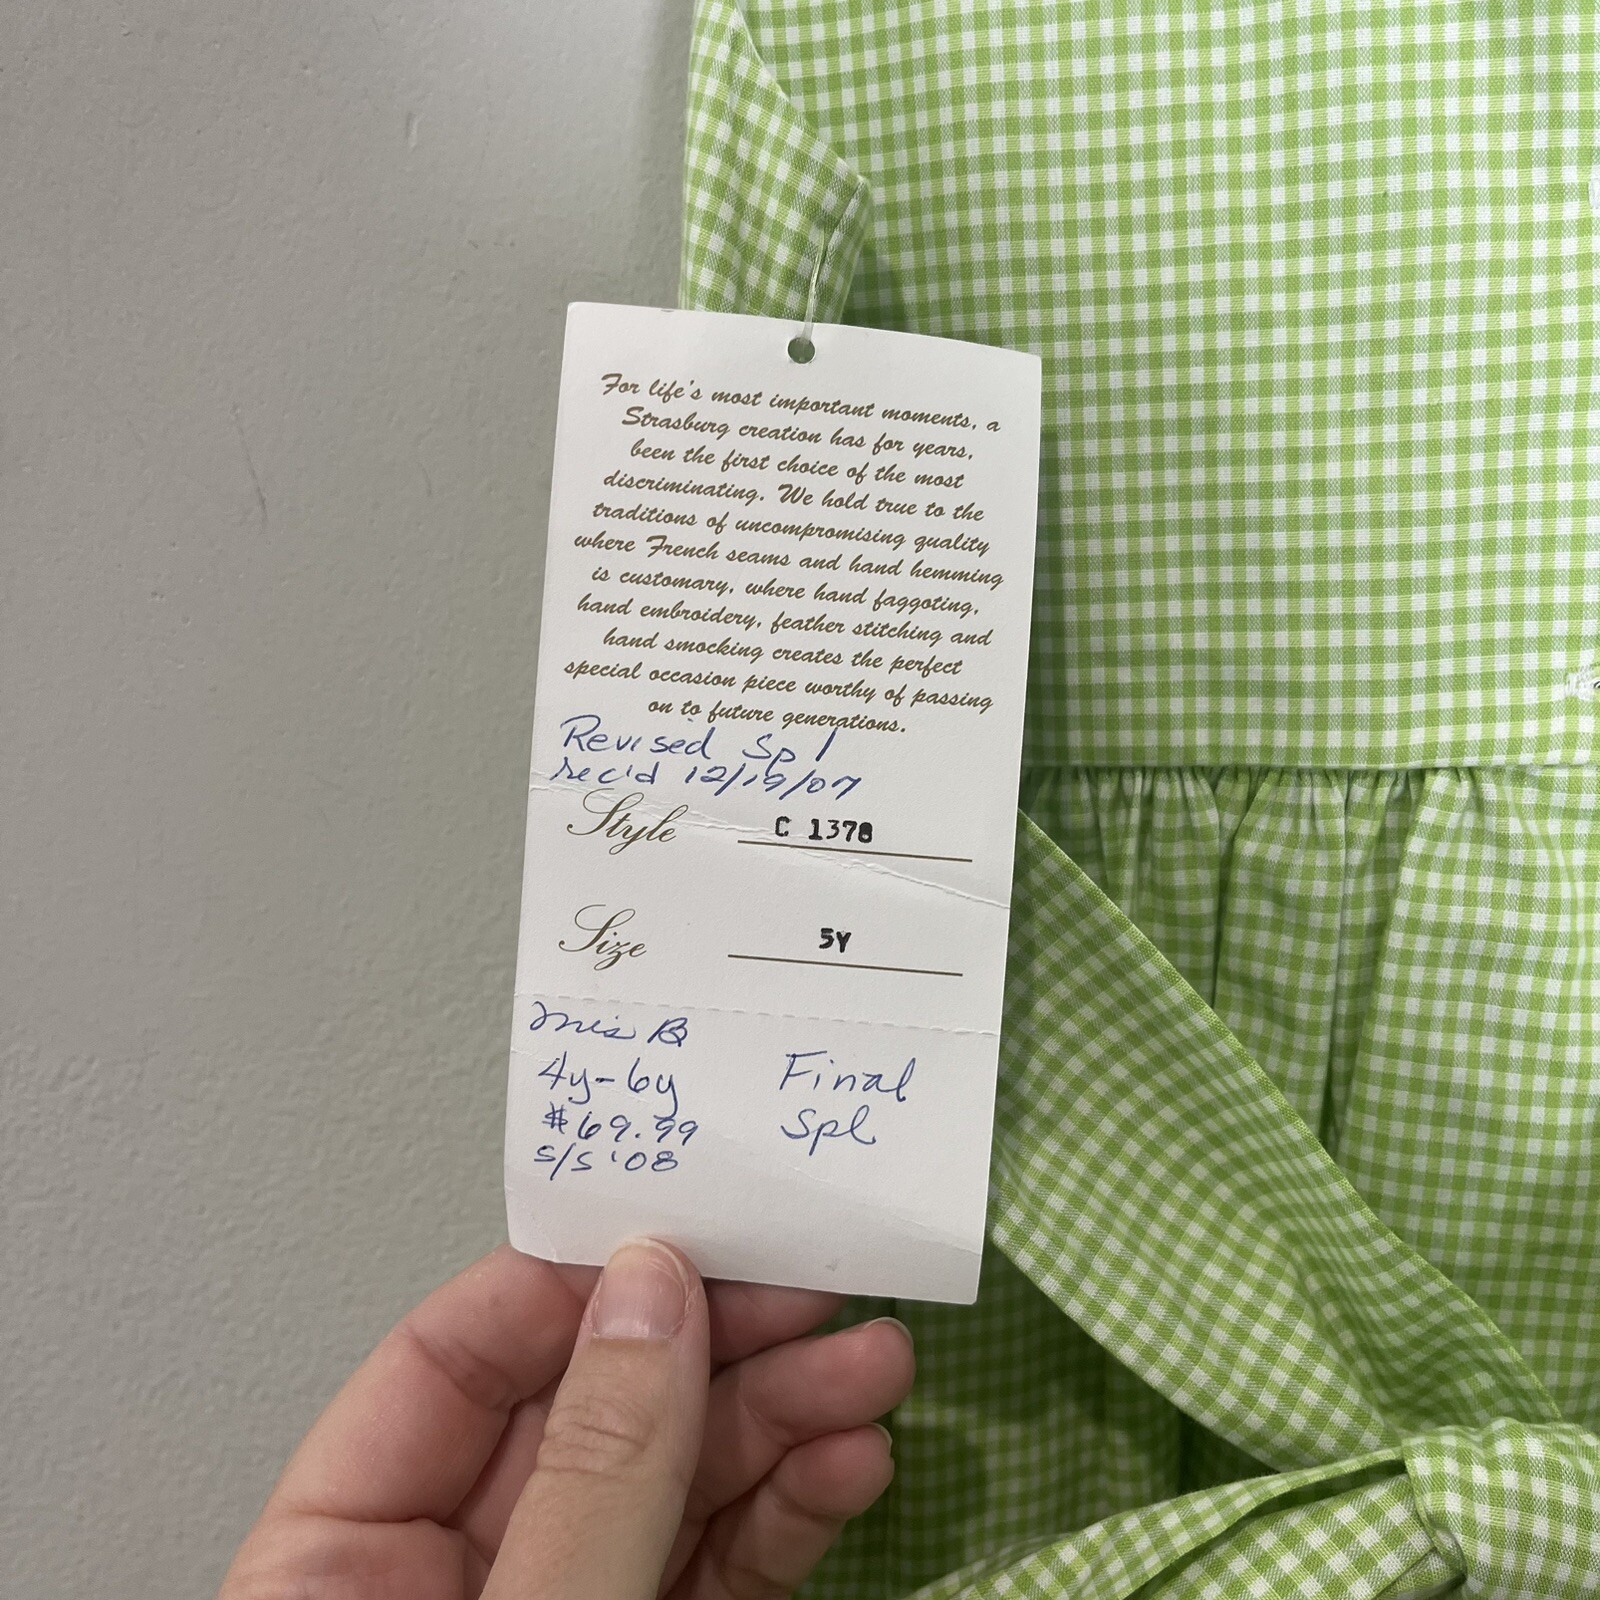 For life's most important moments, a
Strasburg creation has for years,
been the first choice of the most
discriminating. We hold true to the
traditions of uncompromising quality
where French seams and hand hemming
is customary, where hand faggoting,
hand embroidery, feather stitching and
hand smocking creates the perfect
special occasion piece worthy of passing
on to future generations.
Revised Spl
rec'd 12/19/07
Style C 1378
Size 5Y
B
4y-6y Final
$69.99 Spl
S/S '08